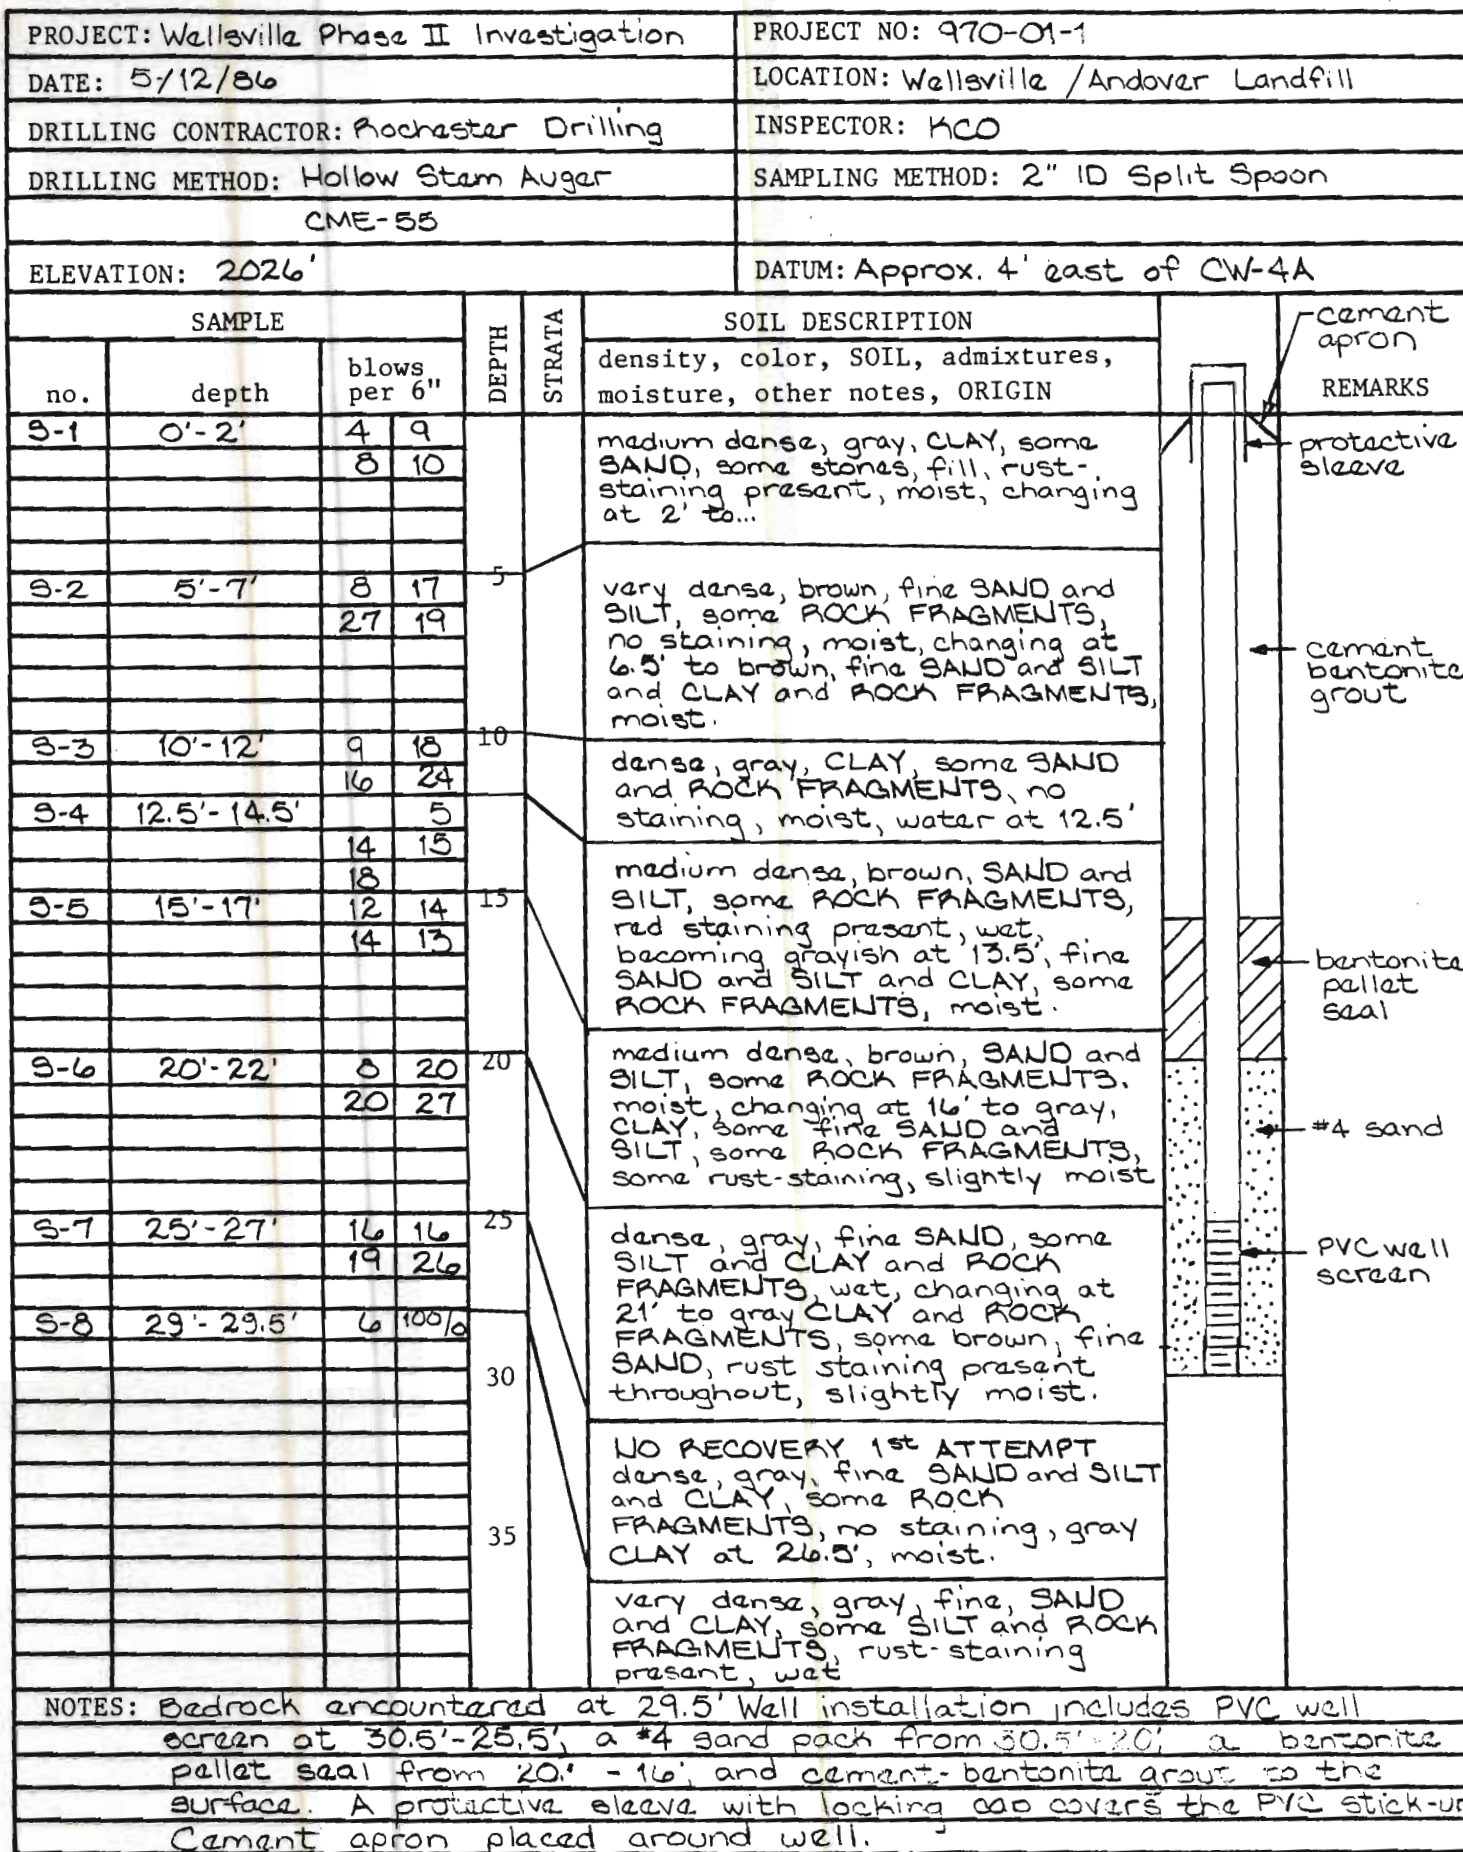 PROJECT: Wellsville Phase II Investigation
PROJECT NO: 970-01-1
DATE: 5/12/86
LOCATION: Wellsville /Andover Landfill
DRILLING CONTRACTOR: Rochester Drilling
INSPECTOR: KCO
DRILLING METHOD: Hollow Stem Auger
SAMPLING METHOD: 2" ID Split Spoon
CME-55
ELEVATION: 2026'
DATUM: Approx. 4' east of CW-4A
SAMPLE
no.
depth
blows
per 6"
DEPTH
STRATA
SOIL DESCRIPTION
density, color, SOIL, admixtures,
moisture, other notes, ORIGIN
REMARKS
S-1 0'-2' 4 9
8 10
S-2 5'-7' 8 17
27 19
S-3 10'-12' 9 18
16 24
S-4 12.5'-14.5' 5
14 15
18
S-5 15'-17' 12 14
14 13
S-6 20'-22' 8 20
20 27
S-7 25'-27' 16 16
19 26
S-8 29'-29.5' 6 100/0
5
10
15
20
25
30
35
medium dense, gray, CLAY, some
SAND, some stones, fill, rust-
staining present, moist, changing
at 2' to...
very dense, brown, fine SAND and
SILT, some ROCK FRAGMENTS,
no staining, moist, changing at
6.5' to brown, fine SAND and SILT
and CLAY and ROCK FRAGMENTS,
moist.
dense, gray, CLAY, some SAND
and ROCK FRAGMENTS, no
staining, moist, water at 12.5'
medium dense, brown, SAND and
SILT, some ROCK FRAGMENTS,
red staining present, wet,
becoming grayish at 13.5', fine
SAND and SILT and CLAY, some
ROCK FRAGMENTS, moist.
medium dense, brown, SAND and
SILT, some ROCK FRAGMENTS.
moist, changing at 16' to gray,
CLAY, some fine SAND and
SILT, some ROCK FRAGMENTS,
some rust-staining, slightly moist
dense, gray, fine SAND, some
SILT and CLAY and ROCK
FRAGMENTS, wet, changing at
21' to gray CLAY and ROCK
FRAGMENTS, some brown, fine
SAND, rust staining present
throughout, slightly moist.
NO RECOVERY 1st ATTEMPT
dense, gray, fine SAND and SILT
and CLAY, some ROCK
FRAGMENTS, no staining, gray
CLAY at 26.5', moist.
very dense, gray, fine, SAND
and CLAY, some SILT and ROCK
FRAGMENTS, rust-staining
present, wet
cement
apron
protective
sleeve
cement
bentonite
grout
bentonite
pellet
seal
#4 sand
PVC well
screen
NOTES: Bedrock encountered at 29.5' Well installation includes PVC well
screen at 30.5'-25.5', a #4 sand pack from 30.5'-20', a bentonite
pellet seal from 20.' - 16', and cement-bentonite grout to the
surface. A protective sleeve with locking cap covers the PVC stick-up
Cement apron placed around well.